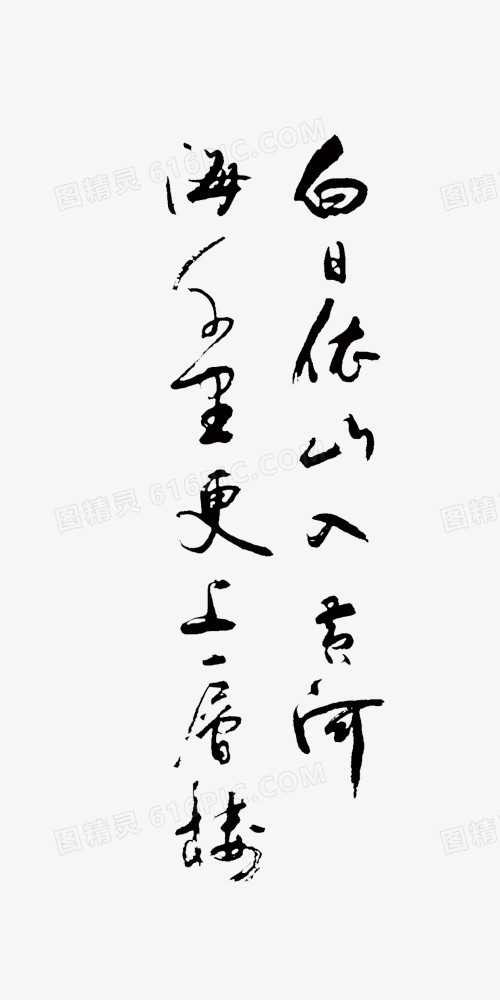 白日依山入黄河
海千里更上一層樓
图精灵 616PIC.COM
图精灵
图精灵 616PIC.COM
图精灵
图精灵 616PIC.COM
图精灵